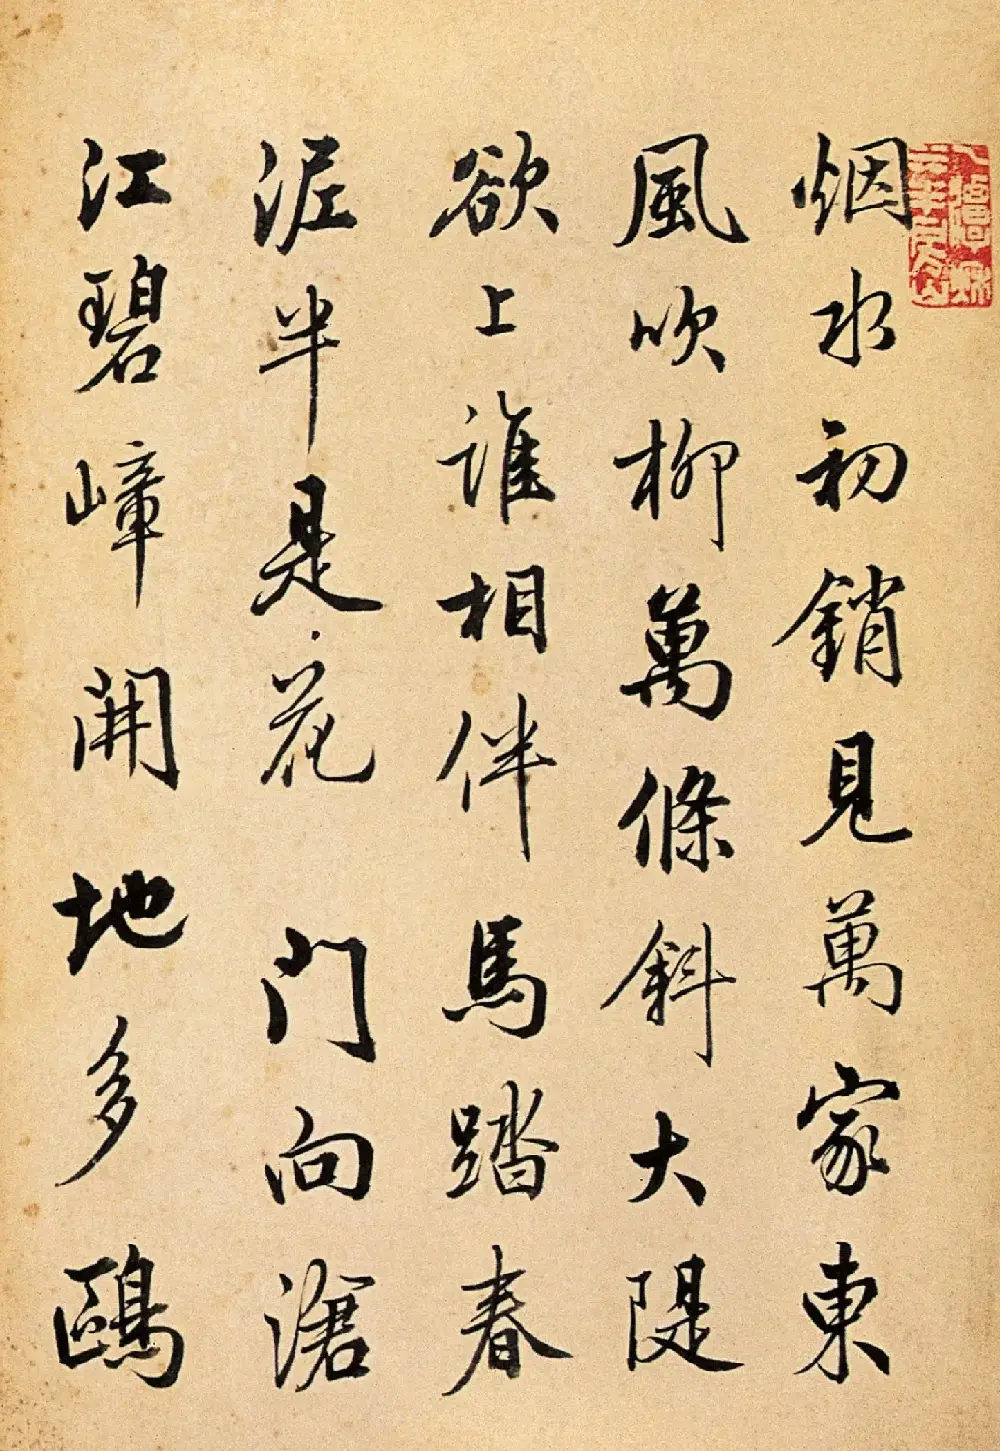 烟水初銷見萬家東
風吹柳萬條斜大隄
欲上誰相伴馬踏春
泥半是花 門向滄
江碧嶂開地多鷗